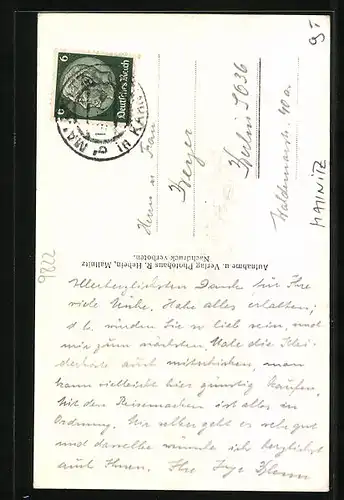 9 I
MALLNITZ
9822
6 6
Deutsches Reich
Herrn u. Frau
Berlin S O 36
Waldemarstr. 40 a.
Aufnahme u. Verlag Photohaus R. Hebein, Mallnitz
Nachdruck verboten.
Allerherzlichsten Dank für Ihre
viele Mühe. Habe alles erhalten;
d. l. würden Sie so lieb sein, und
mir zum nächsten Male die Klei-
derkarte auch mitschicken, man
kann vielleicht hier günstig kaufen.
Mit den Reisemarken ist alles in
Ordnung. Mir selber geht es sehr gut
und dasselbe wünsche ich herzlichst
auch Ihnen. Ihre Inge